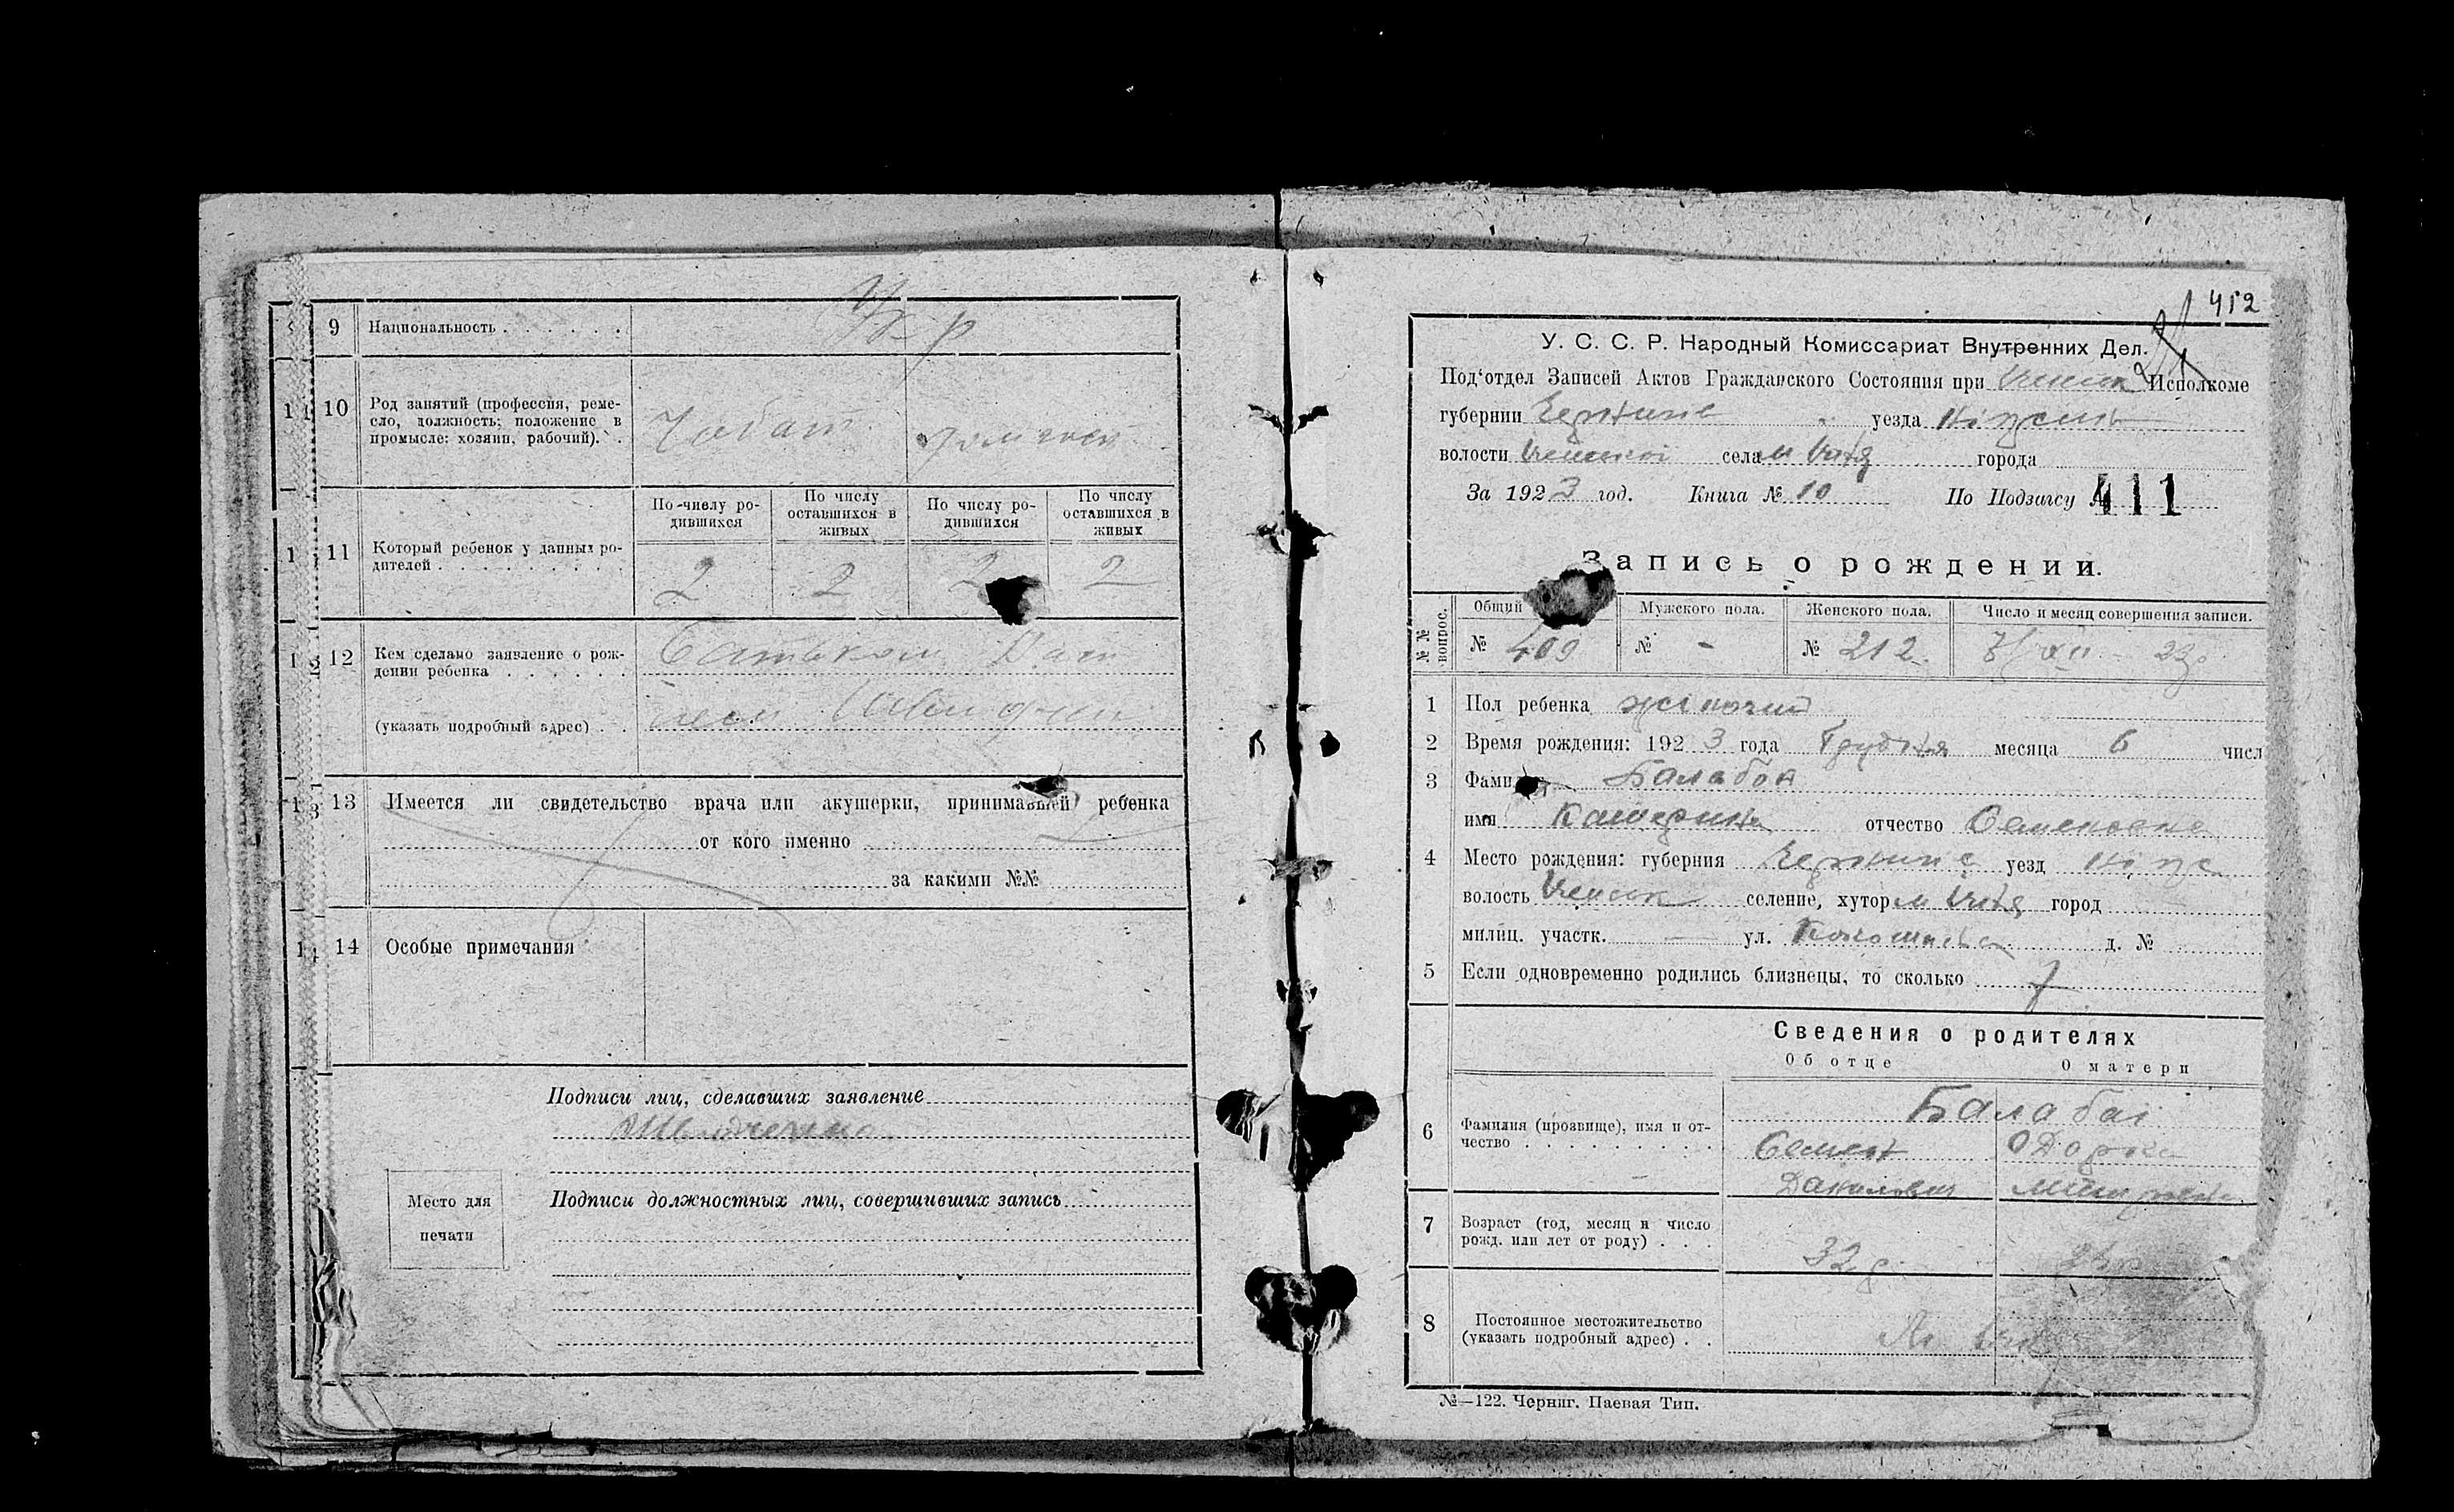 9 Национальность Укр
10 Род занятий (профессия, реме-
сло, должность; положение в
промысле: хозяин, рабочий). Чобат
По числу ро-
дившихся
По числу
оставшихся в
живых
По числу ро-
дившихся
По числу
оставшихся в
живых
11 Который ребенок у данных ро-
дителей 2 2 2 2
12 Кем сделано заявление о рож-
дении ребенка Батьком
(указать подробный адрес)
13 Имеется ли свидетельство врача или акушерки, принимавшей ребенка
от кого именно
за какими №№
14 Особые примечания
Подписи лиц, сделавших заявление
Место для
печати
Подписи должностных лиц, совершивших запись
412
У. С. С. Р. Народный Комиссариат Внутренних Дел.
Под‘отдел Записей Актов Гражданского Состояния при Исполкоме
губернии Черниг уезда Ніжень
волости села м Ічня города
За 1923 год. Книга № 10 По Подзагсу № 411
Запись о рождении.
№№ вопрос.
Общий Мужского пола. Женского пола. Число и месяц совершения записи.
№ 409 № - № 212 XII 23
1 Пол ребенка жіночий
2 Время рождения: 1923 года Грудня месяца 6 числ
3 Фами Балабон
имя Катерина отчество Семеновна
4 Место рождения: губерния Черниг уезд Ніж
волость селение, хутор м Ічня город
милиц. участк. — ул. д. №
5 Если одновременно родились близнецы, то сколько
Сведения о родителях
Об отце О матери
6 Фамилия (прозвище), имя и от-
чество Балабаі
Семен Одарка
Данилович
7 Возраст (год, месяц и число
рожд. или лет от роду) 32
8 Постоянное местожительство
(указать подробный адрес)
№—122. Черниг. Паевая Тип.